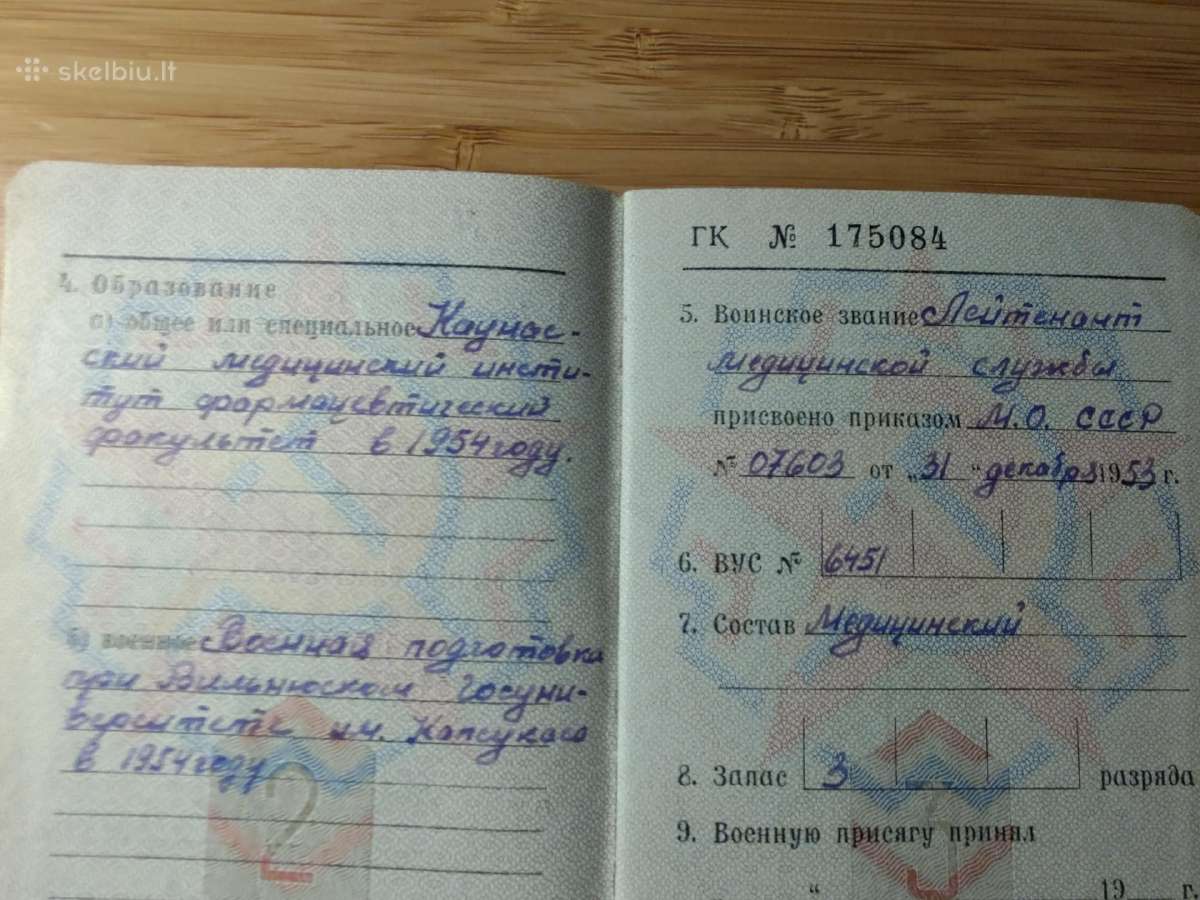 skelbiu.lt
4. Образование
а) общее или специальное Каунас-
ский медицинский инсти-
тут фармацевтический
факультет в 1954 году.
б) военное Военная подготовка
при Вильнюсском Госуни-
верситете им. Капсукаса
в 1954 году
2
ГК № 175084
5. Воинское звание Лейтенант
медицинской службы
присвоено приказом М.О. СССР
№ 07603 от „31“ декабря 1953 г.
6. ВУС № 6451
7. Состав Медицинский
8. Запас 3 разряда
9. Военную присягу принял
“ 19 г.